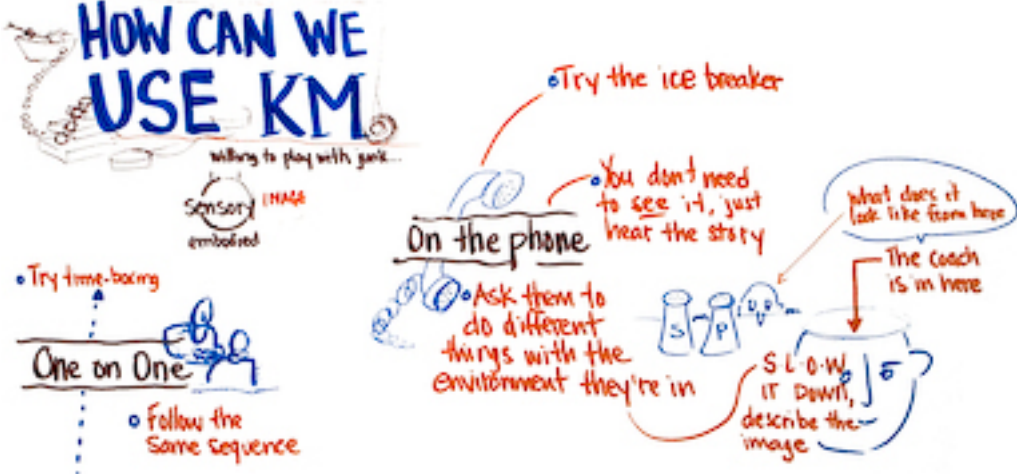 HOW CAN WE
USE KM
willing to play with junk...
sensory IMAGE
embodied
• Try time-boxing
One on One
• Follow the
Same sequence
• Try the ice breaker
• You don't need
to see it, just
hear the story
On the phone
• Ask them to
do different
things with the
environment they're in
What does it
look like from here
The coach
is in here
S P
S·L·O·W
IT DOWN,
describe the
image